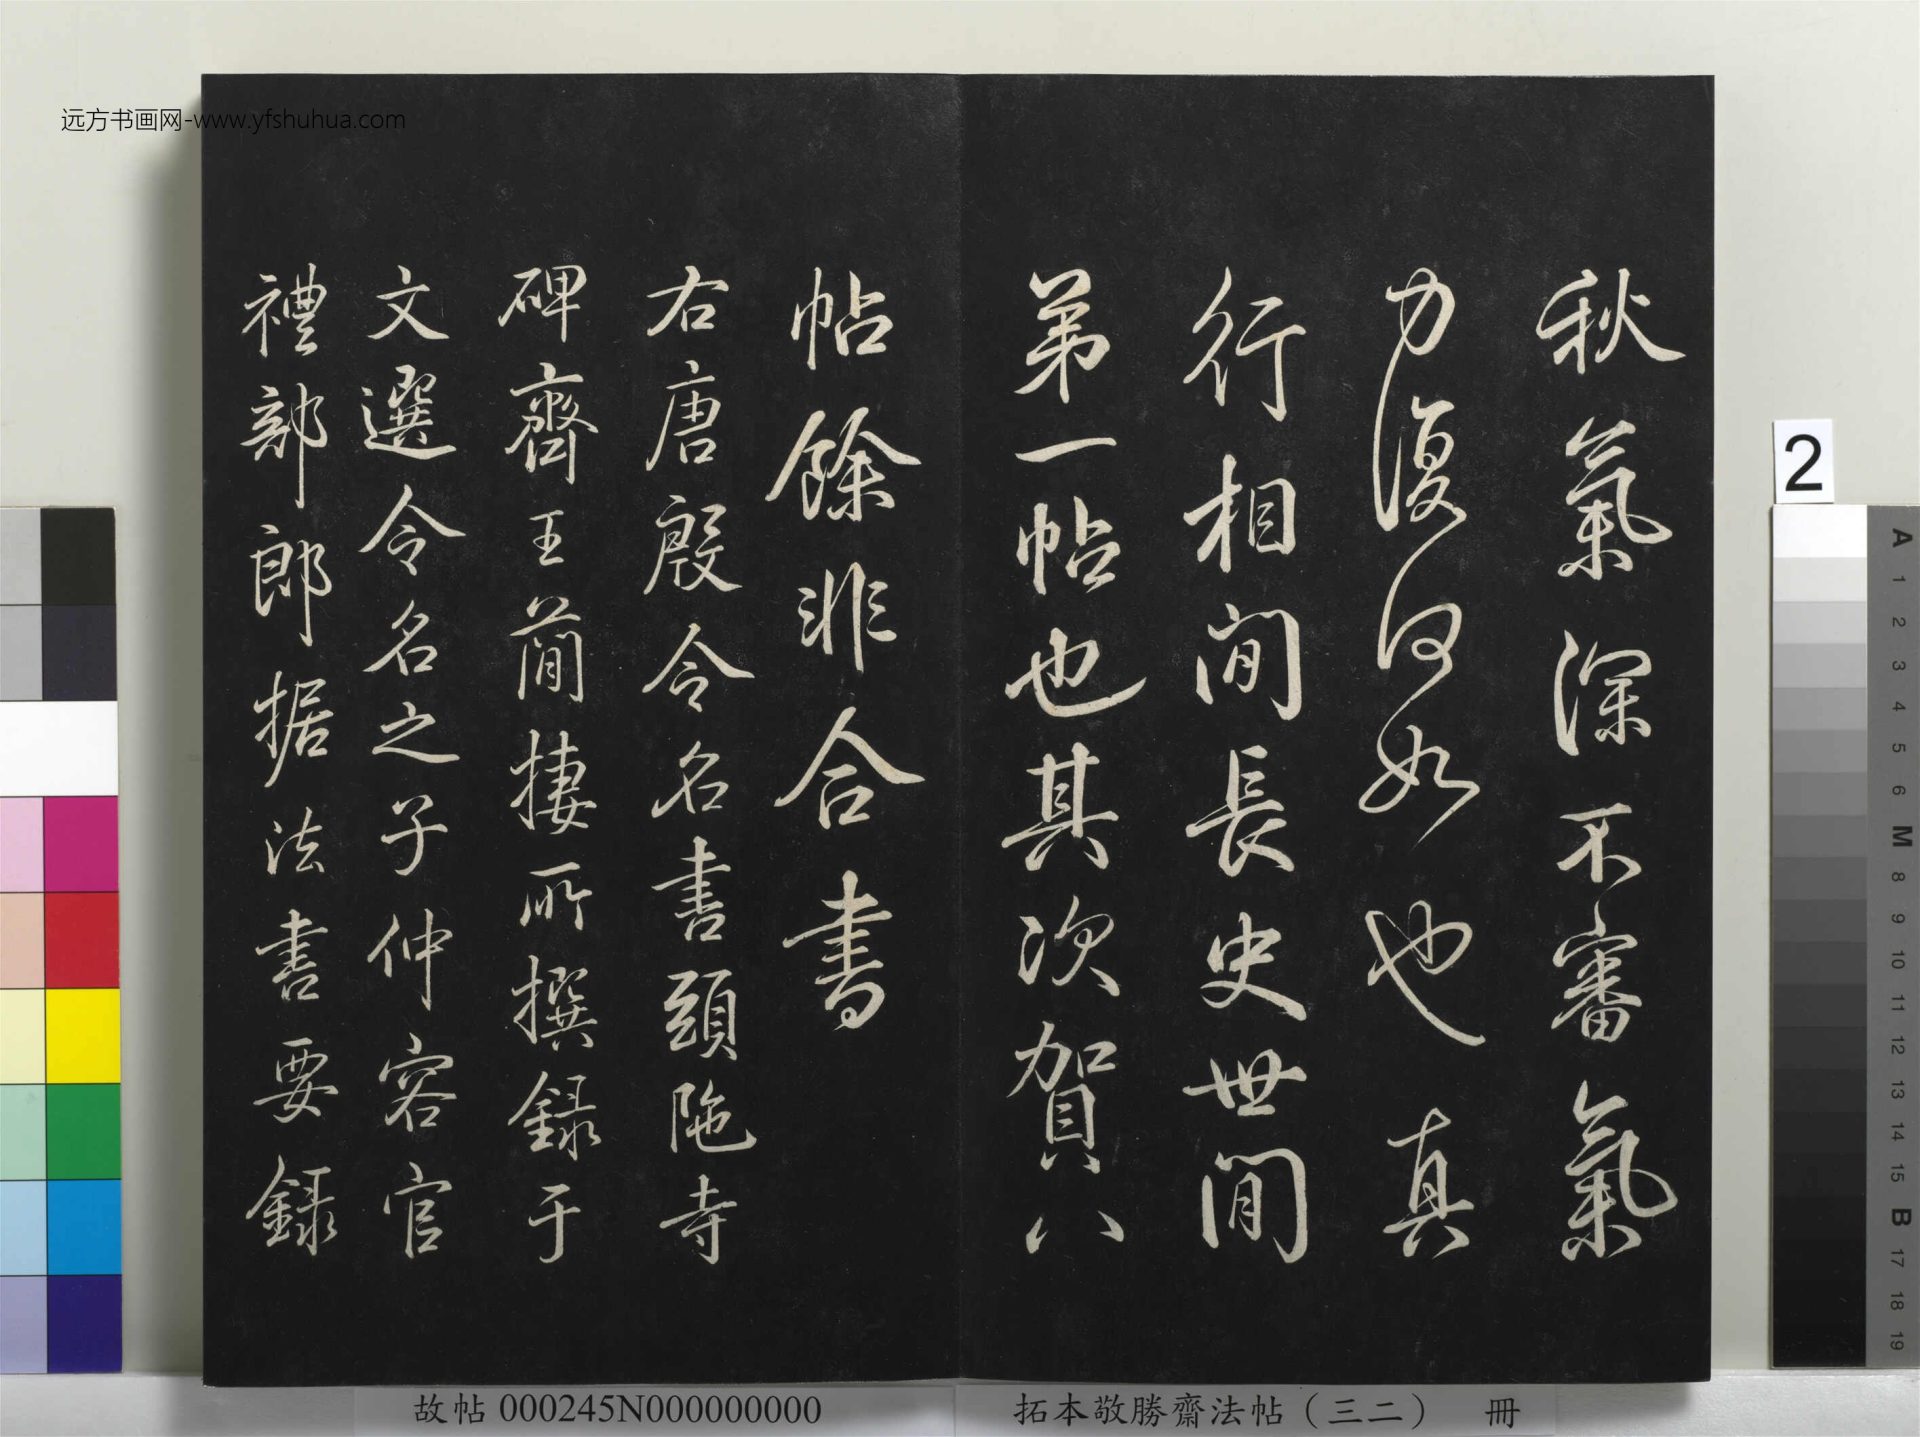 秋氣深不審氣
力復何如也真
行相間長史世間
第一帖也其次賀八
帖餘非合書
右唐殷令名書頭陁寺
碑齊王簡棲所撰録于
文選令名之子仲容官
禮部郎据法書要録
远方书画网-www.yfshuhua.com
2
A
1
2
3
4
5
6
M
8
9
10
11
12
13
14
15
B
17
18
19
故帖 000245N000000000
拓本敬勝齋法帖（三二） 冊